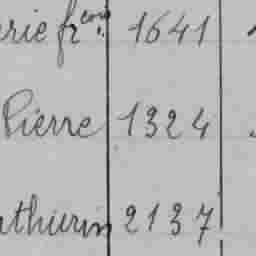 arie frçoise 1641
Pierre 1324
athurin 2137